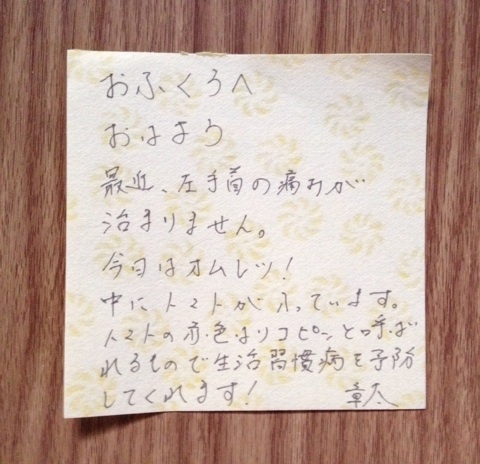 おふくろへ
おはよう
最近、左手首の痛みが
治まりません。
今日はオムレツ!
中にトマトが入っています。
トマトの赤色はリコピンと呼ば
れるもので生活習慣病を予防
してくれます!
章太